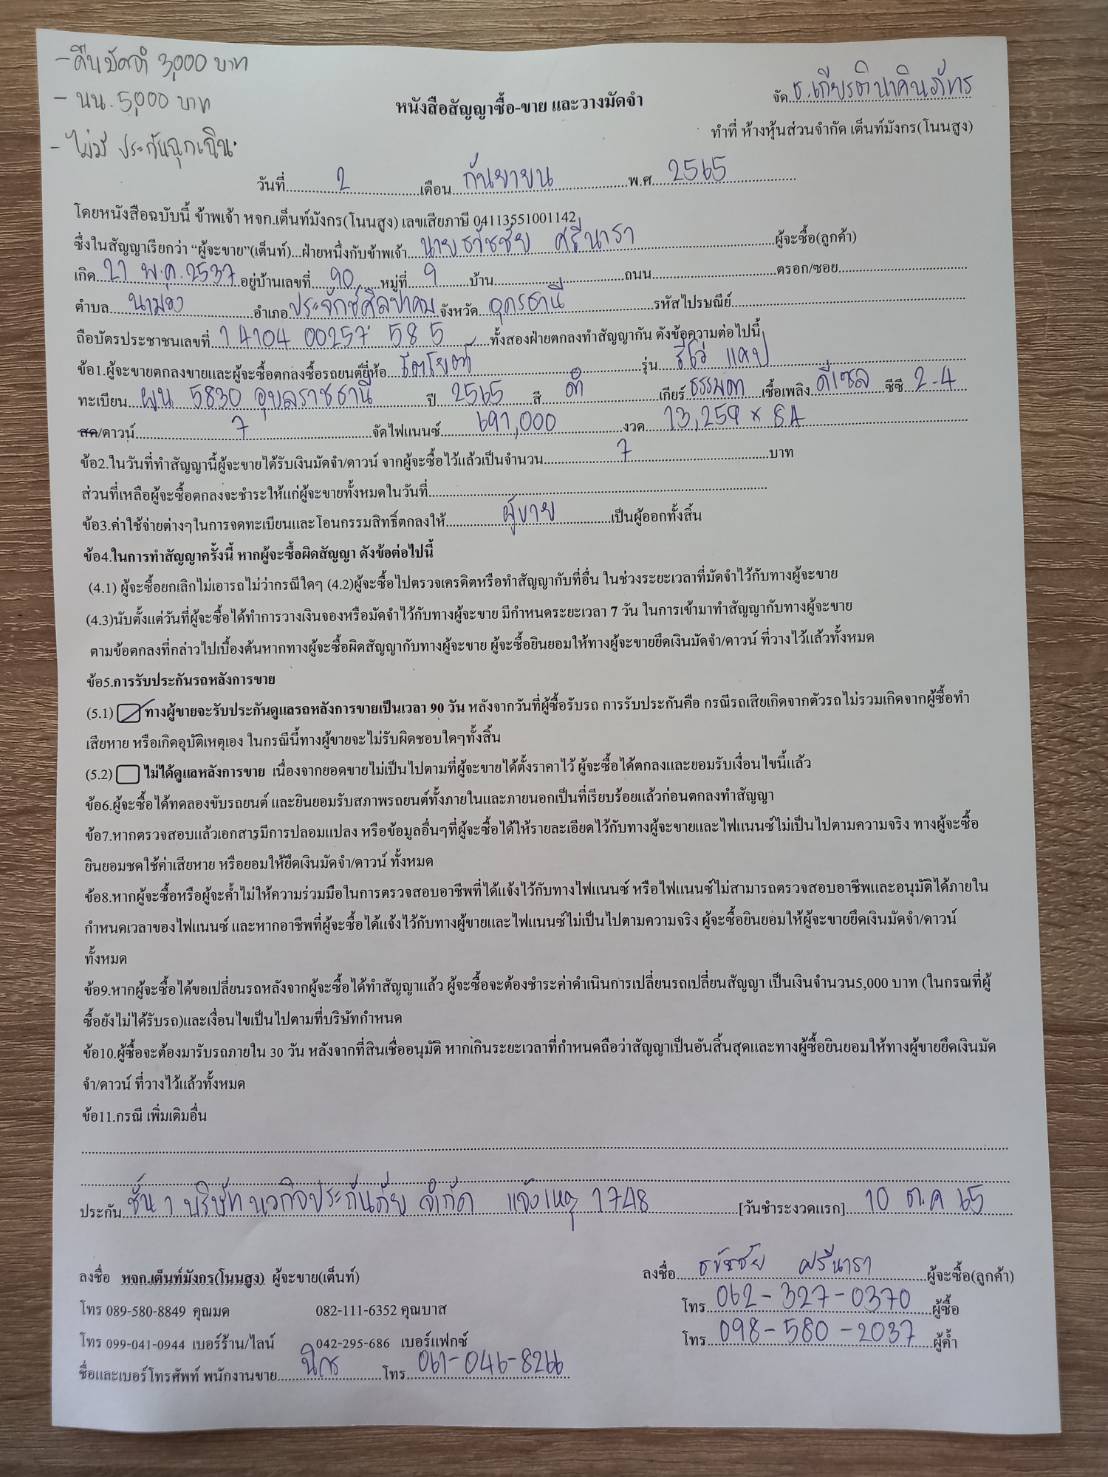 - คืนมัดจำ 3,000 บาท
- นน. 5,000 บาท
- ไม่มี ประกันฉุกเฉิน
จัด ธ.เกียรตินาคินภัทร
หนังสือสัญญาซื้อ-ขาย และวางมัดจำ
ทำที่ ห้างหุ้นส่วนจำกัด เต็นท์มังกร(โนนสูง)
วันที่ 2 เดือน กันยายน พ.ศ. 2565
โดยหนังสือฉบับนี้ ข้าพเจ้า หจก.เต็นท์มังกร(โนนสูง) เลขเสียภาษี 04113551001142
ซึ่งในสัญญาเรียกว่า “ผู้จะขาย”(เต็นท์)...ฝ่ายหนึ่งกับข้าพเจ้า นายธวัชชัย ศรีนารา ผู้จะซื้อ(ลูกค้า)
เกิด 27 พ.ค. 2537 อยู่บ้านเลขที่ 90 หมู่ที่ 9 บ้าน ถนน ตรอก/ซอย
ตำบล นาม่วง อำเภอ ประจักษ์ศิลปาคม จังหวัด อุดรธานี รหัสไปรษณีย์
ถือบัตรประชาชนเลขที่ 1 4104 00257 58 5 ทั้งสองฝ่ายตกลงทำสัญญากัน ดังข้อความต่อไปนี้
ข้อ1.ผู้จะขายตกลงขายและผู้จะซื้อตกลงซื้อรถยนต์ยี่ห้อ โตโยต้า รุ่น รีโว่ แคป
ทะเบียน ผน 5830 อุบลราชธานี ปี 2565 สี ดำ เกียร์ ธรรมดา เชื้อเพลิง ดีเซล ซีซี 2.4
สด/ดาวน์ 7 จัดไฟแนนซ์ 691,000 งวด 13,259 x 84
ข้อ2.ในวันที่ทำสัญญานี้ผู้จะขายได้รับเงินมัดจำ/ดาวน์ จากผู้จะซื้อไว้แล้วเป็นจำนวน 7 บาท
ส่วนที่เหลือผู้จะซื้อตกลงจะชำระให้แก่ผู้จะขายทั้งหมดในวันที่
ข้อ3.ค่าใช้จ่ายต่างๆในการจดทะเบียนและโอนกรรมสิทธิ์ตกลงให้ ผู้ขาย เป็นผู้ออกทั้งสิ้น
ข้อ4.ในการทำสัญญาครั้งนี้ หากผู้จะซื้อผิดสัญญา ดังข้อต่อไปนี้
(4.1) ผู้จะซื้อยกเลิกไม่เอารถไม่ว่ากรณีใดๆ (4.2)ผู้จะซื้อไปตรวจเครดิตหรือทำสัญญากับที่อื่น ในช่วงระยะเวลาที่มัดจำไว้กับทางผู้จะขาย
(4.3)นับตั้งแต่วันที่ผู้จะซื้อได้ทำการวางเงินจองหรือมัดจำไว้กับทางผู้จะขาย มีกำหนดระยะเวลา 7 วัน ในการเข้ามาทำสัญญากับทางผู้จะขาย
ตามข้อตกลงที่กล่าวไปเบื้องต้นหากทางผู้จะซื้อผิดสัญญากับทางผู้จะขาย ผู้จะซื้อยินยอมให้ทางผู้จะขายยึดเงินมัดจำ/ดาวน์ ที่วางไว้แล้วทั้งหมด
ข้อ5.การรับประกันรถหลังการขาย
(5.1) ทางผู้ขายจะรับประกันดูแลรถหลังการขายเป็นเวลา 90 วัน หลังจากวันที่ผู้ซื้อรับรถ การรับประกันคือ กรณีรถเสียเกิดจากตัวรถ ไม่รวมเกิดจากผู้ซื้อทำ
เสียหาย หรือเกิดอุบัติเหตุเอง ในกรณีนี้ทางผู้ขายจะไม่รับผิดชอบใดๆทั้งสิ้น
(5.2) ไม่ได้ดูแลหลังการขาย เนื่องจากยอดขายไม่เป็นไปตามที่ผู้จะขายได้ตั้งราคาไว้ ผู้จะซื้อได้ตกลงและยอมรับเงื่อนไขนี้แล้ว
ข้อ6.ผู้จะซื้อได้ทดลองขับรถยนต์ และยินยอมรับสภาพรถยนต์ทั้งภายในและภายนอกเป็นที่เรียบร้อยแล้วก่อนตกลงทำสัญญา
ข้อ7.หากตรวจสอบแล้วเอกสารมีการปลอมแปลง หรือข้อมูลอื่นๆที่ผู้จะซื้อได้ให้รายละเอียดไว้กับทางผู้จะขายและไฟแนนซ์ไม่เป็นไปตามความจริง ทางผู้จะซื้อ
ยินยอมชดใช้ค่าเสียหาย หรือยอมให้ยึดเงินมัดจำ/ดาวน์ ทั้งหมด
ข้อ8.หากผู้จะซื้อหรือผู้จะค้ำไม่ให้ความร่วมมือในการตรวจสอบอาชีพที่ได้แจ้งไว้กับทางไฟแนนซ์ หรือไฟแนนซ์ไม่สามารถตรวจสอบอาชีพและอนุมัติได้ภายใน
กำหนดเวลาของไฟแนนซ์ และหากอาชีพที่ผู้จะซื้อได้แจ้งไว้กับทางผู้ขายและไฟแนนซ์ไม่เป็นไปตามความจริง ผู้จะซื้อยินยอมให้ผู้จะขายยึดเงินมัดจำ/ดาวน์
ทั้งหมด
ข้อ9.หากผู้จะซื้อได้ขอเปลี่ยนรถหลังจากผู้จะซื้อได้ทำสัญญาแล้ว ผู้จะซื้อจะต้องชำระค่าดำเนินการเปลี่ยนรถเปลี่ยนสัญญา เป็นเงินจำนวน5,000 บาท (ในกรณที่ผู้
ซื้อยังไม่ได้รับรถ)และเงื่อนไขเป็นไปตามที่บริษัทกำหนด
ข้อ10.ผู้ซื้อจะต้องมารับรถภายใน 30 วัน หลังจากที่สินเชื่ออนุมัติ หากเกินระยะเวลาที่กำหนดถือว่าสัญญาเป็นอันสิ้นสุดและทางผู้ซื้อยินยอมให้ทางผู้ขายยึดเงินมัด
จำ/ดาวน์ ที่วางไว้แล้วทั้งหมด
ข้อ11.กรณี เพิ่มเติมอื่น
ประกัน ชั้น 1 บริษัท นวกิจประกันภัย จำกัด แจ้งเหตุ 1748 [วันชำระงวดแรก] 10 ต.ค 65
ลงชื่อ หจก.เต็นท์มังกร(โนนสูง) ผู้จะขาย(เต็นท์)
ลงชื่อ ธวัชชัย ศรีนารา ผู้จะซื้อ(ลูกค้า)
โทร 089-580-8849 คุณมด 082-111-6352 คุณบาส
โทร 062-327-0370 ผู้ซื้อ
โทร 099-041-0944 เบอร์ร้าน/ไลน์ 042-295-686 เบอร์แฟกซ์
โทร 098-580-2037 ผู้ค้ำ
ชื่อและเบอร์โทรศัพท์ พนักงานขาย นิกร โทร 061-046-8266